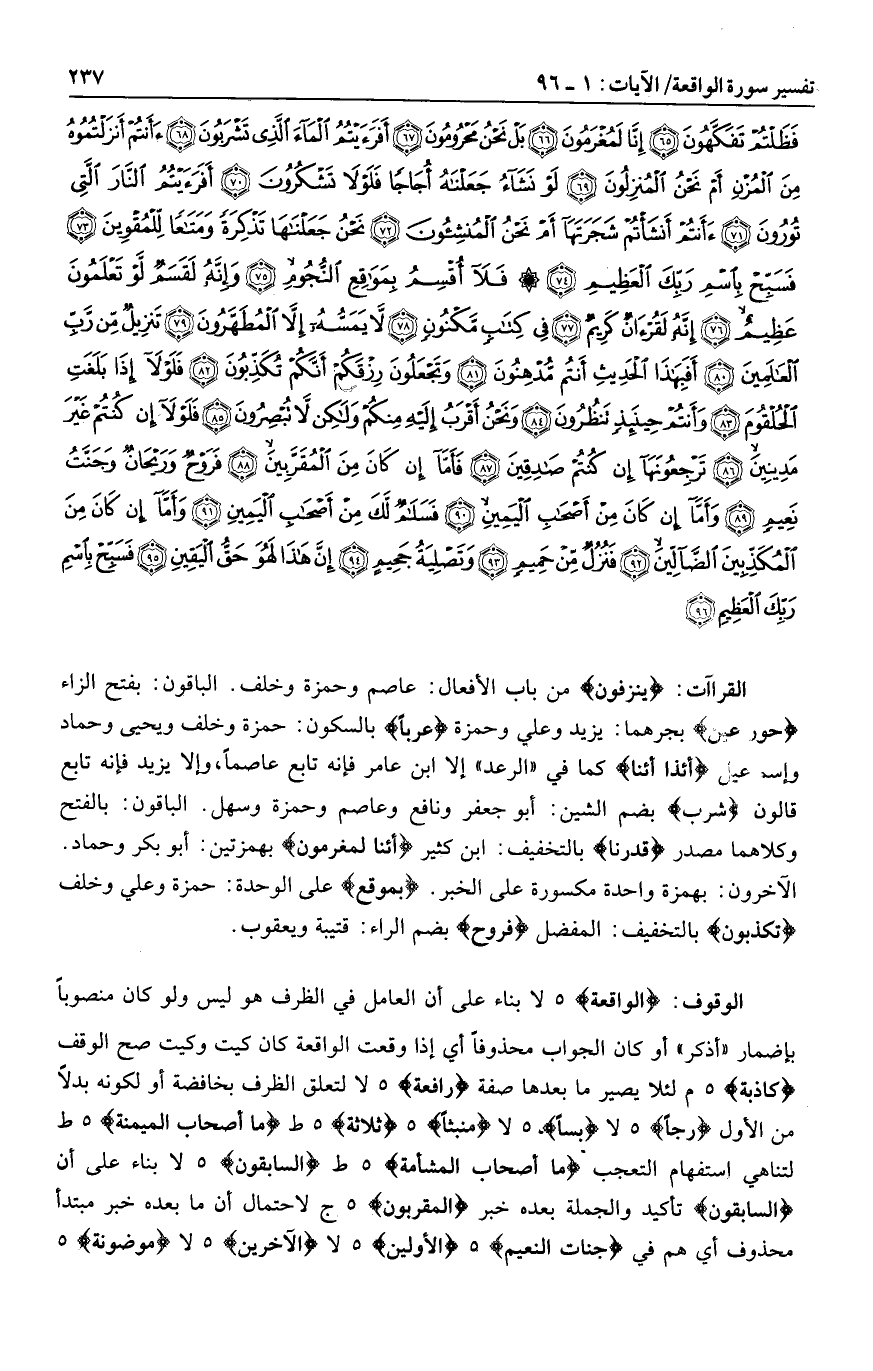 تفسير سورة الواقعة/ الآيات: ١ ـ ٩٦
٢٣٧
فَظَلْتُمْ تَفَكَّهُونَ ﴿٦٥﴾ إِنَّا لَمُغْرَمُونَ ﴿٦٦﴾ بَلْ نَحْنُ مَحْرُومُونَ ﴿٦٧﴾ أَفَرَءَيْتُمُ ٱلْمَآءَ ٱلَّذِى تَشْرَبُونَ ﴿٦٨﴾ ءَأَنتُمْ أَنزَلْتُمُوهُ
مِنَ ٱلْمُزْنِ أَمْ نَحْنُ ٱلْمُنزِلُونَ ﴿٦٩﴾ لَوْ نَشَآءُ جَعَلْنَٰهُ أُجَاجًا فَلَوْلَا تَشْكُرُونَ ﴿٧٠﴾ أَفَرَءَيْتُمُ ٱلنَّارَ ٱلَّتِى
تُورُونَ ﴿٧١﴾ ءَأَنتُمْ أَنشَأْتُمْ شَجَرَتَهَآ أَمْ نَحْنُ ٱلْمُنشِـُٔونَ ﴿٧٢﴾ نَحْنُ جَعَلْنَٰهَا تَذْكِرَةً وَمَتَٰعًا لِّلْمُقْوِينَ ﴿٧٣﴾
فَسَبِّحْ بِٱسْمِ رَبِّكَ ٱلْعَظِيمِ ﴿٧٤﴾ ۞ فَلَآ أُقْسِمُ بِمَوَٰقِعِ ٱلنُّجُومِ ﴿٧٥﴾ وَإِنَّهُۥ لَقَسَمٌ لَّوْ تَعْلَمُونَ
عَظِيمٌ ﴿٧٦﴾ إِنَّهُۥ لَقُرْءَانٌ كَرِيمٌ ﴿٧٧﴾ فِى كِتَٰبٍ مَّكْنُونٍ ﴿٧٨﴾ لَّا يَمَسُّهُۥٓ إِلَّا ٱلْمُطَهَّرُونَ ﴿٧٩﴾ تَنزِيلٌ مِّن رَّبِّ
ٱلْعَٰلَمِينَ ﴿٨٠﴾ أَفَبِهَٰذَا ٱلْحَدِيثِ أَنتُم مُّدْهِنُونَ ﴿٨١﴾ وَتَجْعَلُونَ رِزْقَكُمْ أَنَّكُمْ تُكَذِّبُونَ ﴿٨٢﴾ فَلَوْلَآ إِذَا بَلَغَتِ
ٱلْحُلْقُومَ ﴿٨٣﴾ وَأَنتُمْ حِينَئِذٍ تَنظُرُونَ ﴿٨٤﴾ وَنَحْنُ أَقْرَبُ إِلَيْهِ مِنكُمْ وَلَٰكِن لَّا تُبْصِرُونَ ﴿٨٥﴾ فَلَوْلَآ إِن كُنتُمْ غَيْرَ
مَدِينِينَ ﴿٨٦﴾ تَرْجِعُونَهَآ إِن كُنتُمْ صَٰدِقِينَ ﴿٨٧﴾ فَأَمَّآ إِن كَانَ مِنَ ٱلْمُقَرَّبِينَ ﴿٨٨﴾ فَرَوْحٌ وَرَيْحَانٌ وَجَنَّتُ
نَعِيمٍ ﴿٨٩﴾ وَأَمَّآ إِن كَانَ مِنْ أَصْحَٰبِ ٱلْيَمِينِ ﴿٩٠﴾ فَسَلَٰمٌ لَّكَ مِنْ أَصْحَٰبِ ٱلْيَمِينِ ﴿٩١﴾ وَأَمَّآ إِن كَانَ مِنَ
ٱلْمُكَذِّبِينَ ٱلضَّآلِّينَ ﴿٩٢﴾ فَنُزُلٌ مِّنْ حَمِيمٍ ﴿٩٣﴾ وَتَصْلِيَةُ جَحِيمٍ ﴿٩٤﴾ إِنَّ هَٰذَا لَهُوَ حَقُّ ٱلْيَقِينِ ﴿٩٥﴾ فَسَبِّحْ بِٱسْمِ
رَبِّكَ ٱلْعَظِيمِ ﴿٩٦﴾
القراآت: ﴿ينزفون﴾ من باب الأفعال: عاصم وحمزة وخلف. الباقون: بفتح الزاء
﴿حور عين﴾ بجرهما: يزيد وعلي وحمزة ﴿عرباً﴾ بالسكون: حمزة وخلف ويحيى وحماد
وإسـ عيل ﴿أئذا أئنا﴾ كما في «الرعد» إلا ابن عامر فإنه تابع عاصماً، وإلا يزيد فإنه تابع
قالون ﴿شرب﴾ بضم الشين: أبو جعفر ونافع وعاصم وحمزة وسهل. الباقون: بالفتح
وكلاهما مصدر ﴿قدرنا﴾ بالتخفيف: ابن كثير ﴿أئنا لمغرمون﴾ بهمزتين: أبو بكر وحماد.
الآخرون: بهمزة واحدة مكسورة على الخبر. ﴿بموقع﴾ على الوحدة: حمزة وعلي وخلف
﴿تكذبون﴾ بالتخفيف: المفضل ﴿فروح﴾ بضم الراء: قتيبة ويعقوب.
الوقوف: ﴿الواقعة﴾ ٥ لا بناء على أن العامل في الظرف هو ليس ولو كان منصوباً
بإضمار «أذكر» أو كان الجواب محذوفاً أي إذا وقعت الواقعة كان كيت وكيت صح الوقف
﴿كاذبة﴾ ٥ م لئلا يصير ما بعدها صفة ﴿رافعة﴾ ٥ لا لتعلق الظرف بخافضة أو لكونه بدلاً
من الأول ﴿رجاً﴾ ٥ لا ﴿بساً﴾. ٥ لا ﴿منبثاً﴾ ٥ ﴿ثلاثة﴾ ٥ ط ﴿ما أصحاب الميمنة﴾ ٥ ط
لتناهي استفهام التعجب ﴿ما أصحاب المشأمة﴾ ٥ ط ﴿السابقون﴾ ٥ لا بناء على أن
﴿السابقون﴾ تأكيد والجملة بعده خبر ﴿المقربون﴾ ٥ ج لاحتمال أن ما بعده خبر مبتدأ
محذوف أي هم في ﴿جنات النعيم﴾ ٥ ﴿الأولين﴾ ٥ لا ﴿الآخرين﴾ ٥ لا ﴿موضونة﴾ ٥